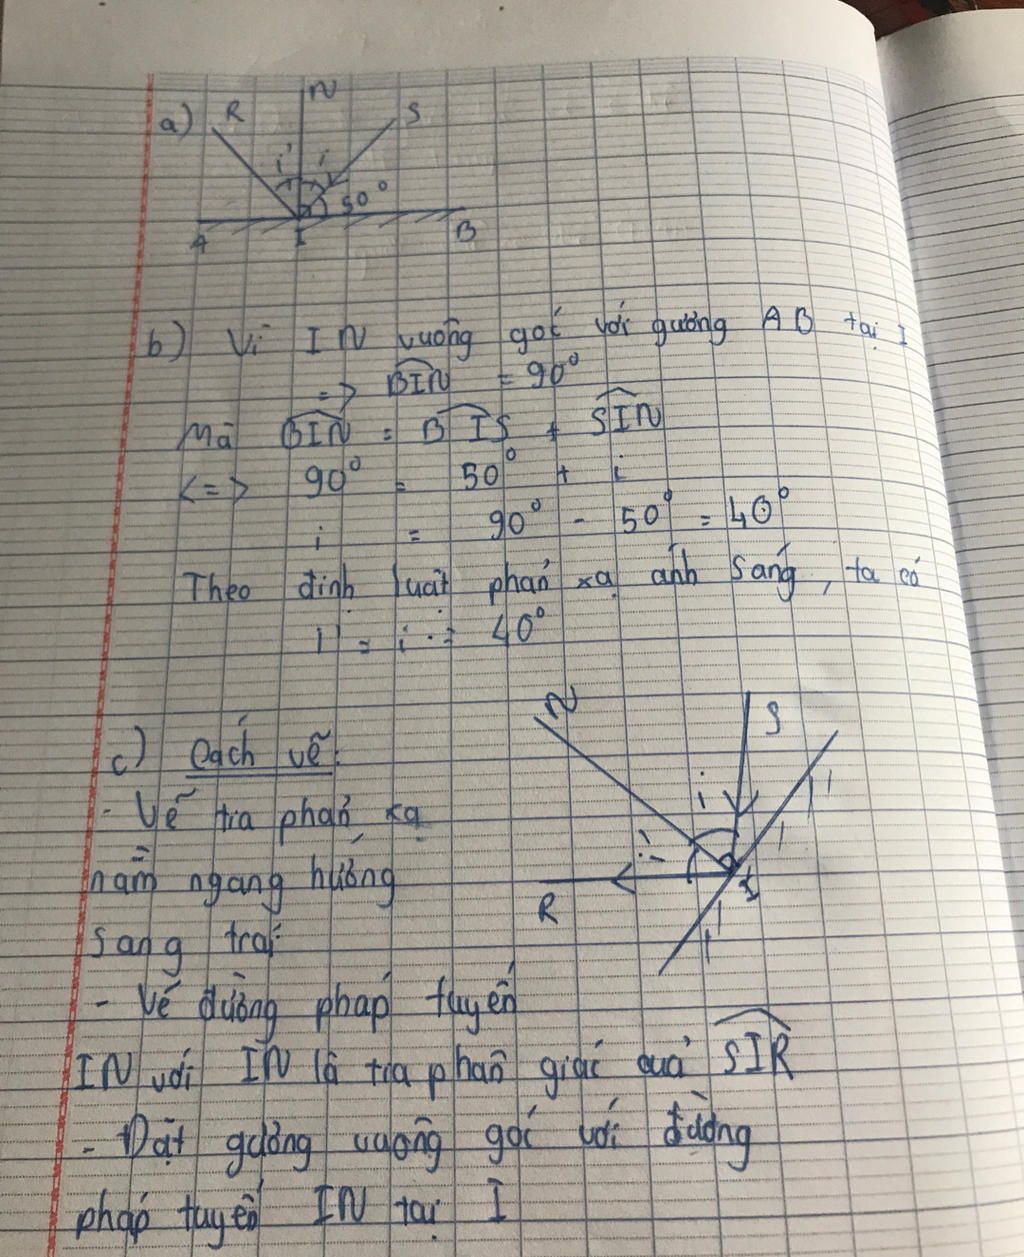 a) R N S
i' i
50°
A I B
b) Vì IN vuông góc với gương AB tại I
=> BIN = 90°
Mà BIN = BIS + SIN
<=> 90° = 50° + i
i = 90° - 50° = 40°
Theo định luật phản xạ ánh sáng, ta có
i' = i = 40°
N S
c) Cách vẽ:
i
- Vẽ tia phản xạ
i'
nằm ngang hướng
I
R
sang trái
- Vẽ đường pháp tuyến
IN với IN là tia phân giác của SIR
- Đặt gương vuông góc với đường
pháp tuyến IN tại I